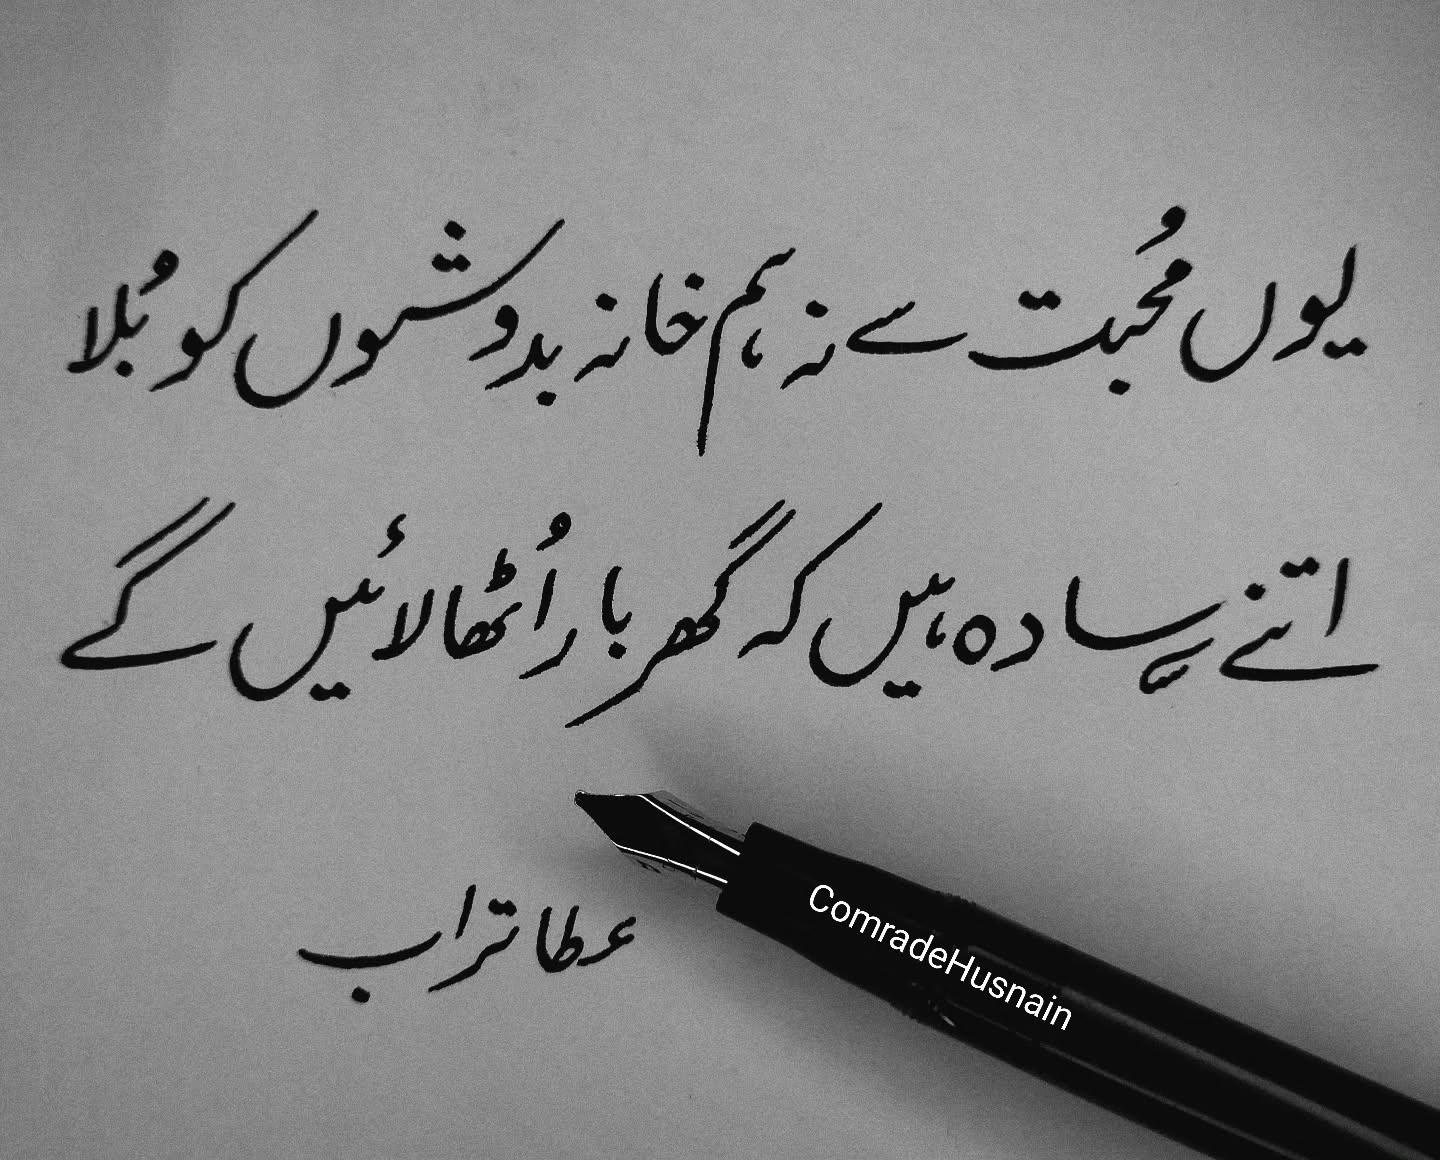 یوں مُحبت سے نہ ہم خانہ بدوشوں کو بُلا
اتنے سادہ ہیں کہ گھر بار اُٹھا لائیں گے
عطا تراب
ComradeHusnain